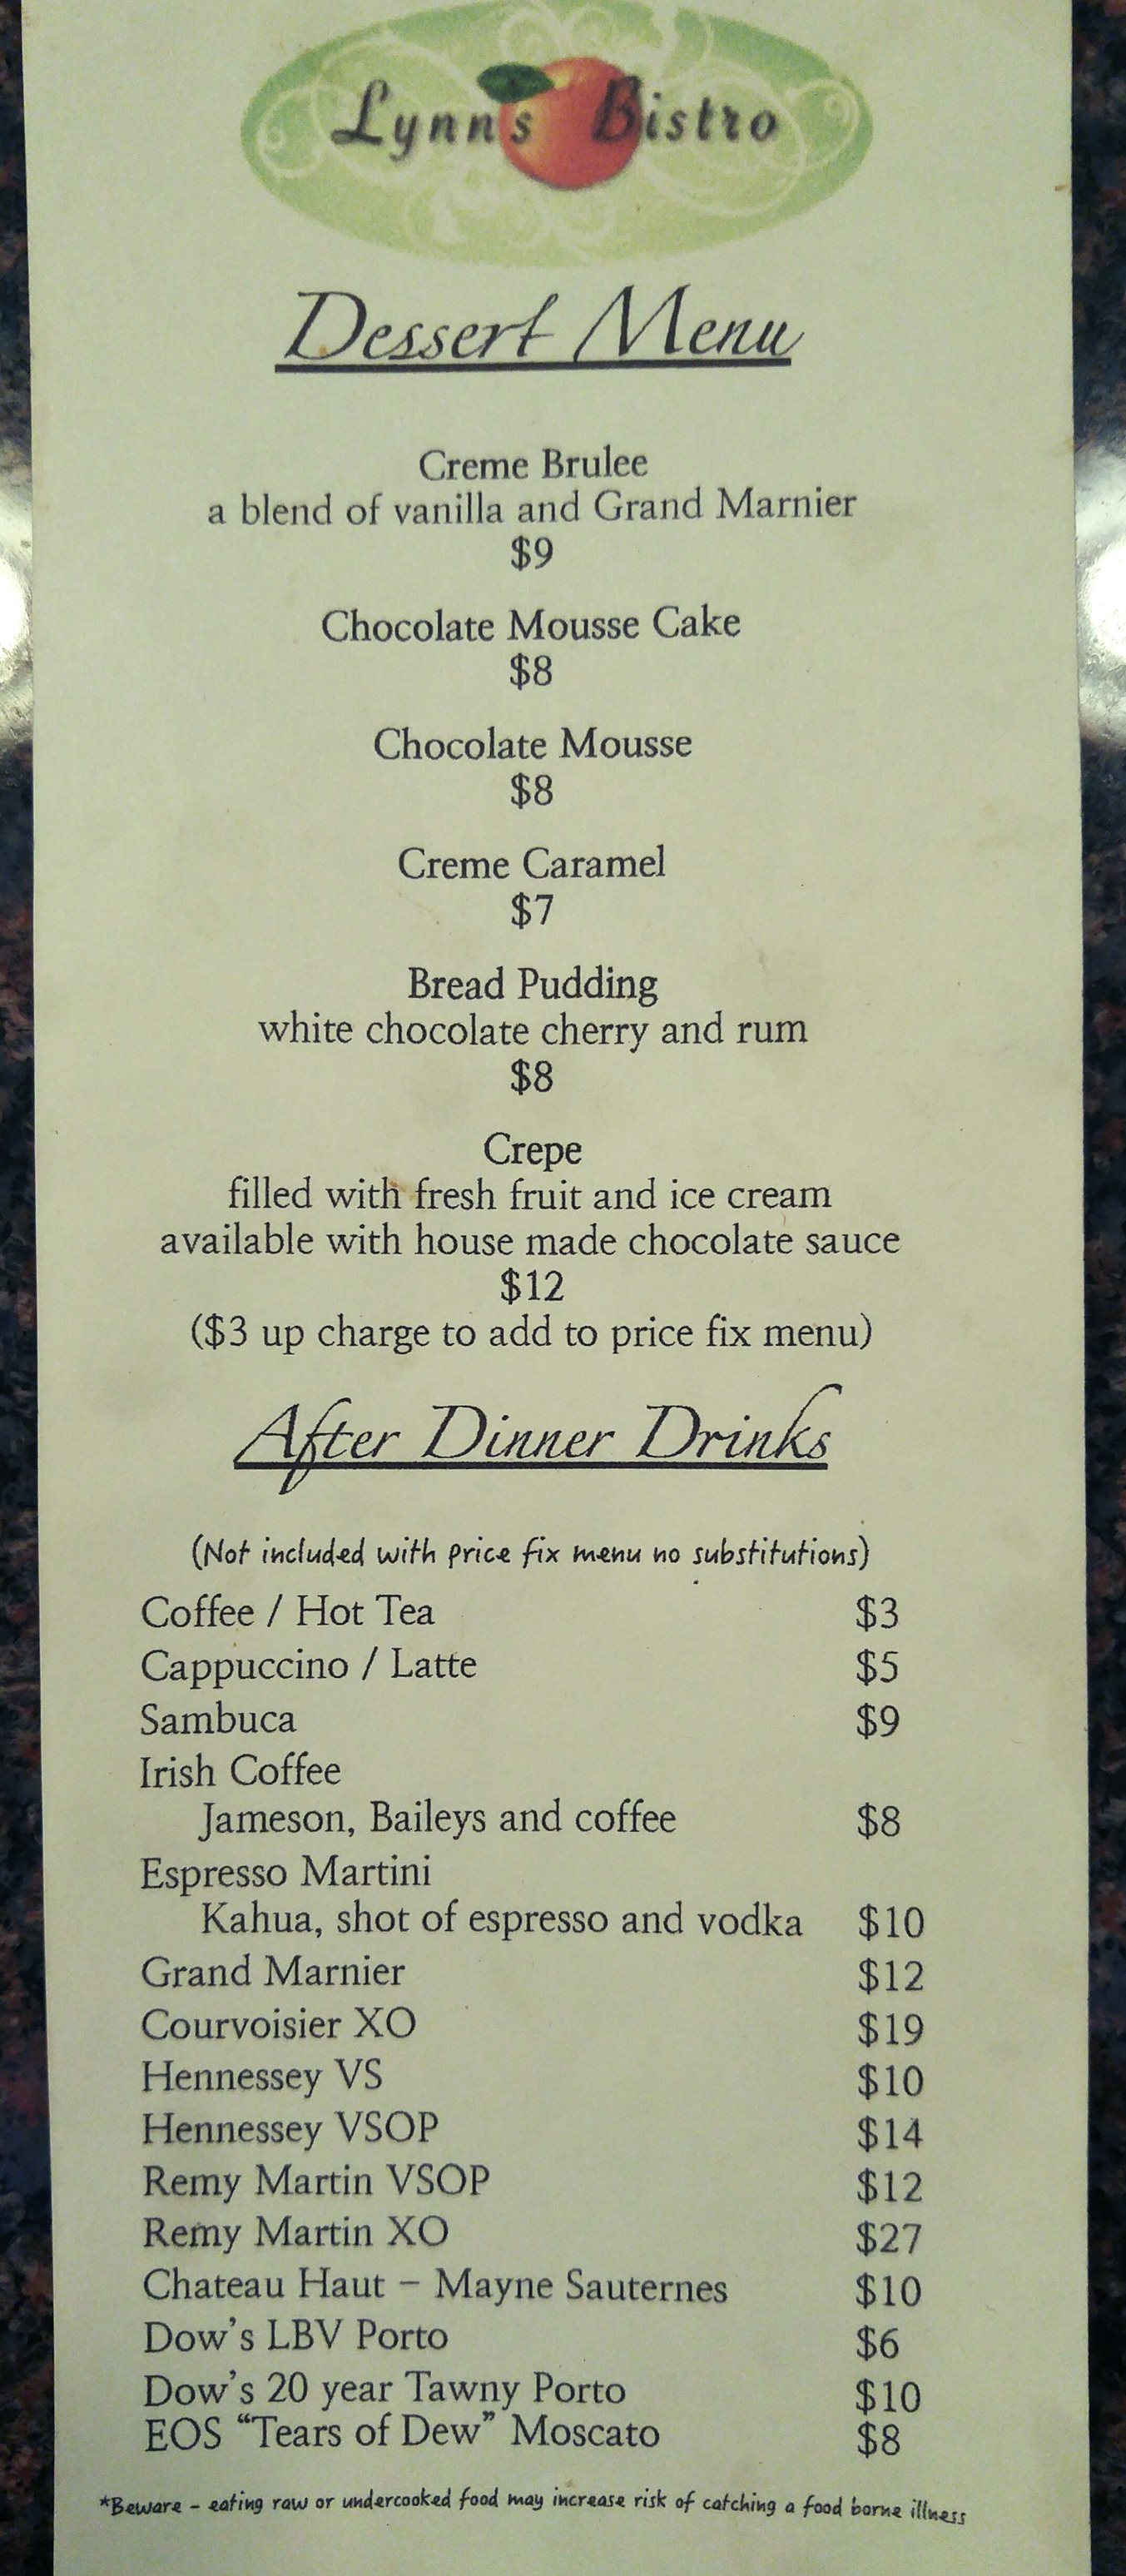 Lynn's Bistro
Dessert Menu
Creme Brulee
a blend of vanilla and Grand Marnier
$9
Chocolate Mousse Cake
$8
Chocolate Mousse
$8
Creme Caramel
$7
Bread Pudding
white chocolate cherry and rum
$8
Crepe
filled with fresh fruit and ice cream
available with house made chocolate sauce
$12
($3 up charge to add to price fix menu)
After Dinner Drinks
(Not included with price fix menu no substitutions)
Coffee / Hot Tea $3
Cappuccino / Latte $5
Sambuca $9
Irish Coffee
Jameson, Baileys and coffee $8
Espresso Martini
Kahua, shot of espresso and vodka $10
Grand Marnier $12
Courvoisier XO $19
Hennessey VS $10
Hennessey VSOP $14
Remy Martin VSOP $12
Remy Martin XO $27
Chateau Haut – Mayne Sauternes $10
Dow's LBV Porto $6
Dow's 20 year Tawny Porto $10
EOS “Tears of Dew” Moscato $8
*Beware - eating raw or undercooked food may increase risk of catching a food borne illness